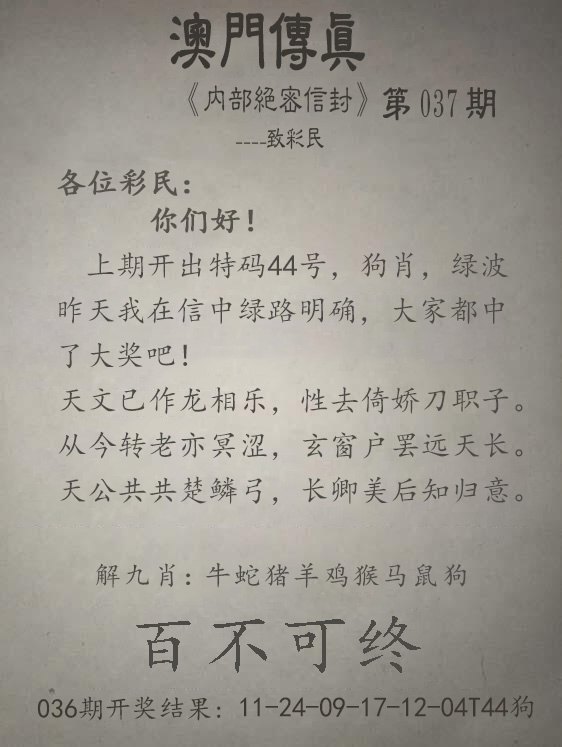 澳門傳眞
《内部絕密信封》第037期
----致彩民
各位彩民：
你们好！
上期开出特码44号，狗肖，绿波
昨天我在信中绿路明确，大家都中
了大奖吧！
天文已作龙相乐，性去倚娇刀职子。
从今转老亦冥涩，玄窗户罢远天长。
天公共共楚鳞弓，长卿美后知归意。
解九肖：牛蛇猪羊鸡猴马鼠狗
百不可终
036期开奖结果：11-24-09-17-12-04T44狗